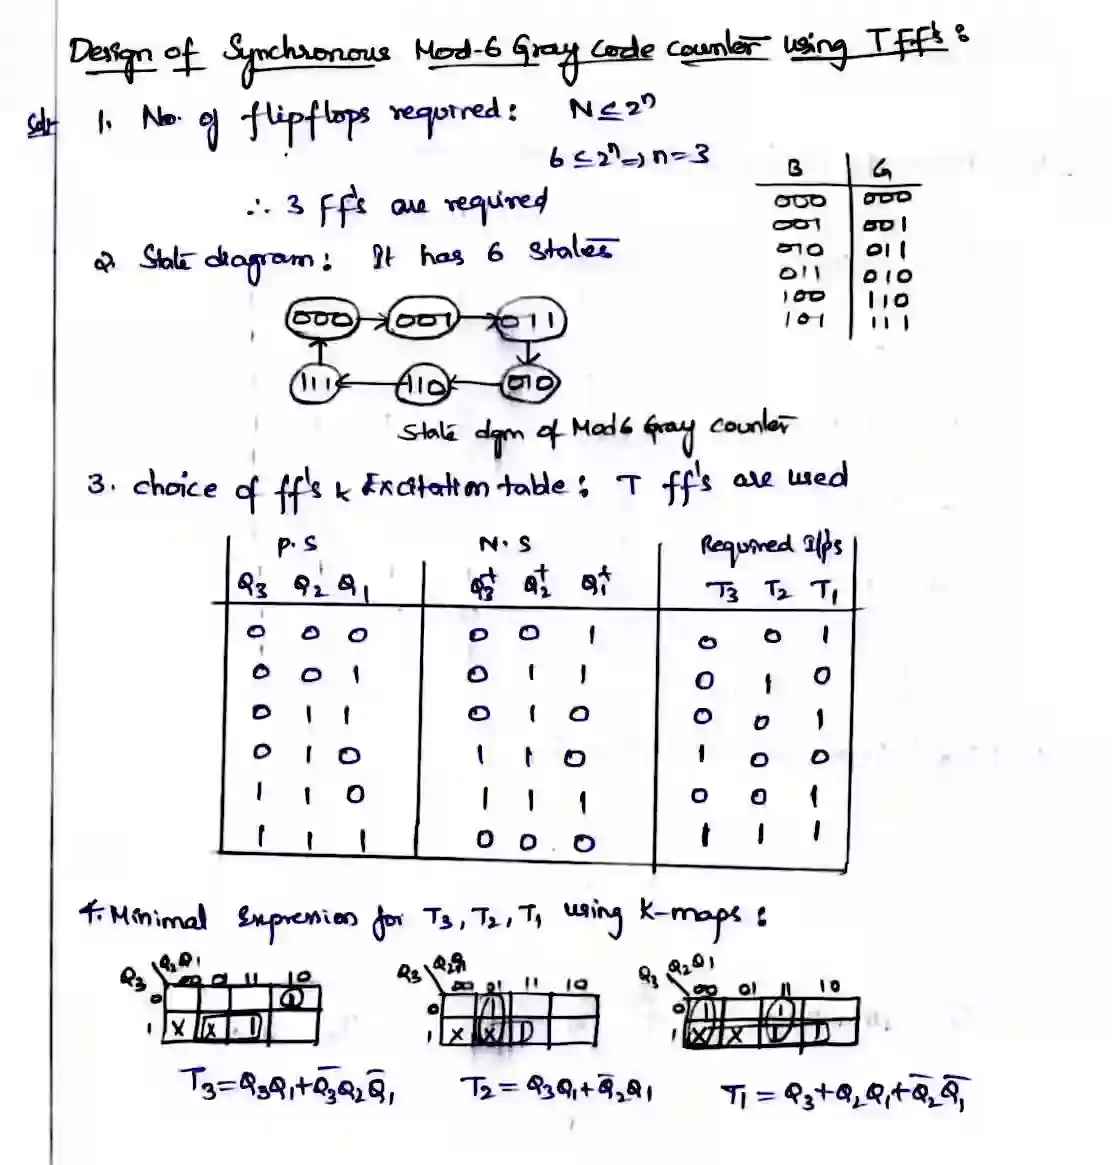 Design of Synchronous Mod-6 Gray code counter using T ff's :
Sol:- 1. No. of flipflops required : N ≤ 2ⁿ
6 ≤ 2ⁿ ⇒ n = 3
∴ 3 ff's are required
B G
000 000
001 001
010 011
011 010
100 110
101 111
2. State diagram : It has 6 states
000 001 011
111 110 010
State dgm of Mod 6 Gray counter
3. choice of ff's & Excitation table : T ff's are used
P.S N.S Required I/ps
Q3 Q2 Q1 Q3⁺ Q2⁺ Q1⁺ T3 T2 T1
0 0 0 0 0 1 0 0 1
0 0 1 0 1 1 0 1 0
0 1 1 0 1 0 0 0 1
0 1 0 1 1 0 1 0 0
1 1 0 1 1 1 0 0 1
1 1 1 0 0 0 1 1 1
4. Minimal Expression for T3, T2, T1 using K-maps :
Q3 Q2Q1 00 01 11 10
0 1
1 X X 1
Q3 Q2Q1 00 01 11 10
0 1
1 X X 1
Q3 Q2Q1 00 01 11 10
0 1 1
1 X X 1 1
T3 = Q3Q1 + Q̅3Q2Q̅1
T2 = Q3Q1 + Q̅2Q1
T1 = Q3 + Q2Q1 + Q̅2Q̅1